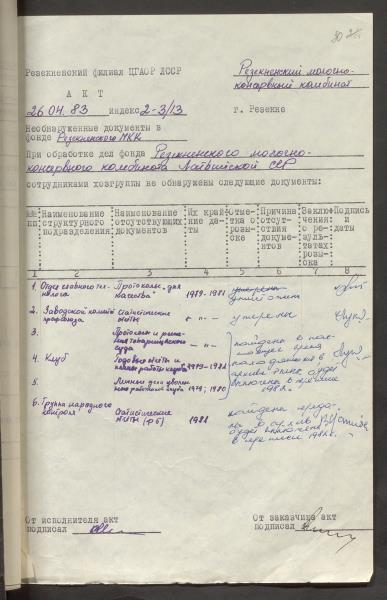 30
Резекненский филиал ЦГАОР ЛССР
Резекненский молочно-
консервный комбинат
А К Т
26.04.83 индекс 2-3/13
г. Резекне
Необнаруженные документы в
фонде Резекненского МКК
При обработке дел фонда Резекненского молочно-
консервного комбината Латвийской ССР
сотрудниками хозгруппы не обнаружены следующие документы:
№№ пп
Наименование структурного подразделения
Наименование отсутствующих документов
Их край- ние да- ты
Отме- тка о розы- ске
Причина отсут- ствия докуме- нтов
Заклю- ч. о ре- зуль- татах розы- ска
Подпись и даты
1 2 3 4 5 6 7 8
1. Отдел главного тех-
нолога
Протоколы „дня
качества"
1979-1981
утеряны
2. Заводской комитет
профсоюза
Статистические
отчёты
- " -
утеряны
3.
Протоколы и реше-
ния товарищеского
суда
- " -
найдены в
4. Клуб
Годовые отчёты и
планы работы клуба
1979-1981
5.
Личные дела уволен-
1979; 1980
6. Группа народного
контроля
Статистические
отчёты (ф 6)
1981
найдена
в архив
будет включена
От исполнителя акт
подписал
От заказчика акт
подписал